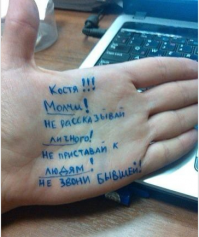 КОСТЯ!!!
МОЛЧИ!
НЕ РАССКАЗЫВАЙ
ЛИЧНОГО!
НЕ ПРИСТАВАЙ К
ЛЮДЯМ!
НЕ ЗВОНИ БЫВШЕЙ!